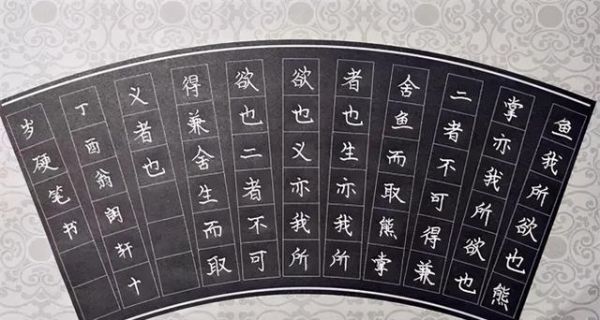 鱼我所欲也熊
掌亦我所欲也
二者不可得兼
舍鱼而取熊掌
者也生亦我所
欲也义亦我所
欲也二者不可
得兼舍生而取
义者也
丁酉翁朗轩十
岁硬笔书